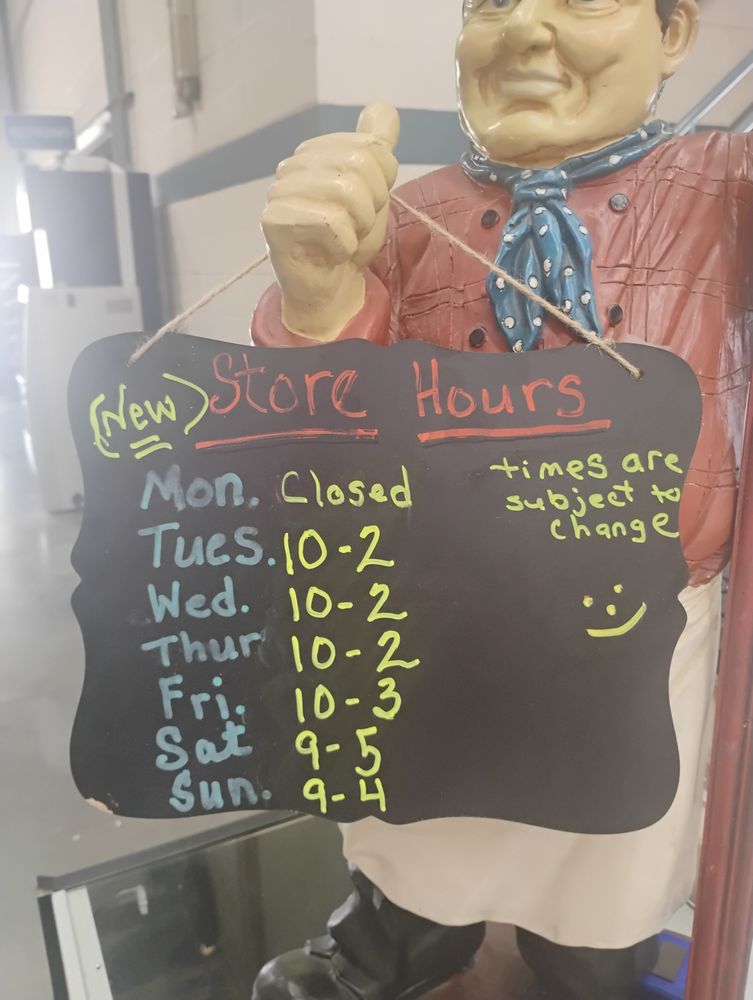 (New) Store Hours
Mon. Closed
Tues. 10-2
Wed. 10-2
Thur 10-2
Fri. 10-3
Sat 9-5
Sun. 9-4
times are
subject to
change